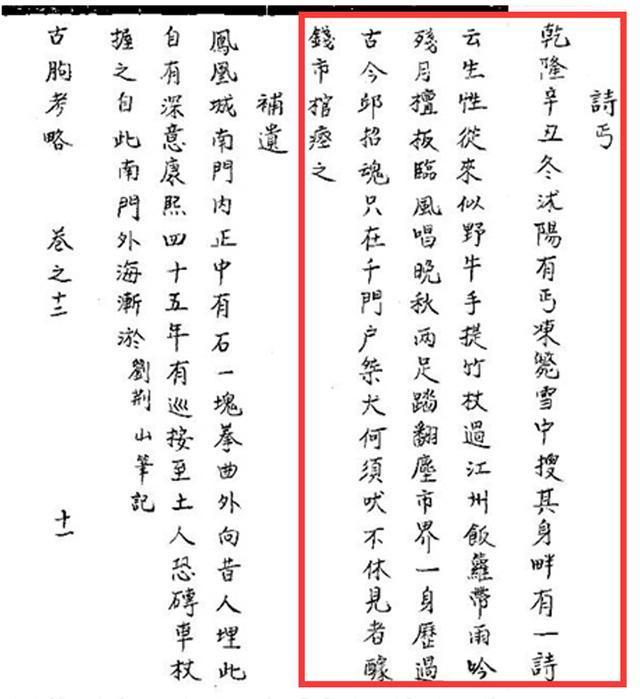 詩丐
乾隆辛丑冬沭陽有丐凍斃雪中搜其身畔有一詩
云生性從來似野牛手提竹杖過江州飯蘿帶雨吟
殘月檀板臨風唱晚秋兩足踏翻塵市界一身歷過
古今邱招魂只在千門户桀犬何須吠不休見者醵
錢市棺瘞之
補遺
鳳凰城南門内正中有石一塊拳曲外向昔人埋此
自有深意康熙四十五年有巡按至土人恐磚車杖
握之自此南門外海漸淤 劉荆山筆記
古朐考略 卷之十二 十一